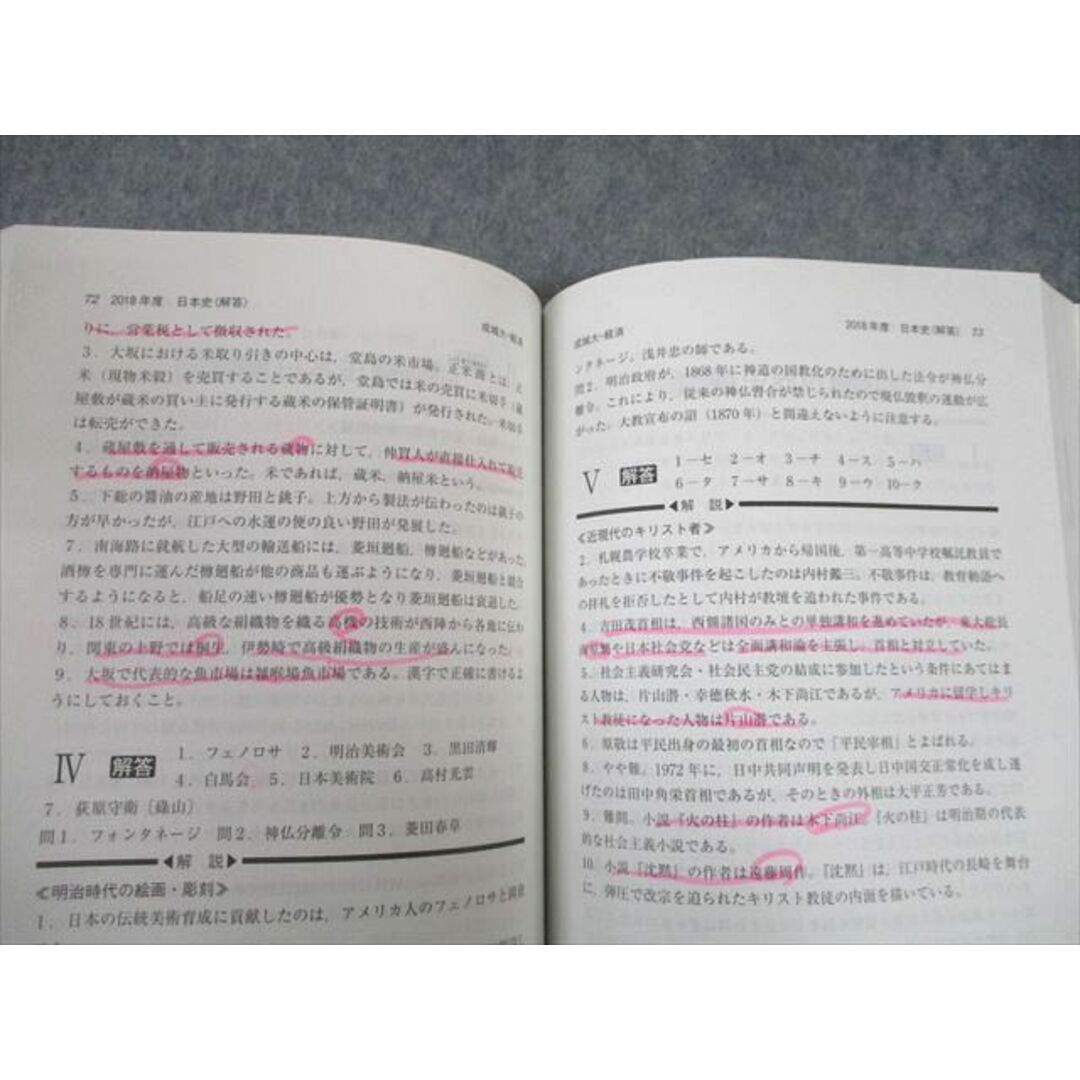 72 2018年度 日本史〈解答〉
成城大-経済
りに、営業税として徴収された。
3．大坂における米取り引きの中心は，堂島の米市場。正米商とは，
米（現物米穀）を売買することであるが，堂島では米の売買に米切手（蔵
屋敷が蔵米の買い主に発行する蔵米の保管証明書）が発行された。米切手
は転売ができた。
4．蔵屋敷を通して販売される蔵物に対して，仲買人が直接仕入れて販売
するものを納屋物といった。米であれば，蔵米，納屋米という。
5．下総の醬油の産地は野田と銚子。上方から製法が伝わったのは銚子の
方が早かったが，江戸への水運の便の良い野田が発展した。
7．南海路に就航した大型の輸送船には，菱垣廻船，樽廻船などがあった。
酒樽を専門に運んだ樽廻船が他の商品も運ぶようになり，菱垣廻船と競合
するようになると，船足の速い樽廻船が優勢となり菱垣廻船は衰退した。
8．18世紀には，高級な絹織物を織る高機の技術が西陣から各地に伝わ
り，関東の上野では桐生，伊勢崎で高級絹織物の生産が盛んになった。
9．大坂で代表的な魚市場は雑喉場魚市場である。漢字で正確に書けるよ
うにしておくこと。
Ⅳ 解答 1．フェノロサ 2．明治美術会 3．黒田清輝
4．白馬会 5．日本美術院 6．高村光雲
7．荻原守衛〔碌山〕
問1．フォンタネージ 問2．神仏分離令 問3．菱田春草
◀解 説▶
≪明治時代の絵画・彫刻≫
1．日本の伝統美術育成に貢献したのは，アメリカ人のフェノロサと岡倉
成城大-経済
2018年度 日本史〈解答〉 73
ンタネージ。浅井忠の師である。
問2．明治政府が，1868年に神道の国教化のために出した法令が神仏分
離令。これにより，従来の神仏習合が禁じられたので廃仏毀釈の運動が広
がった。大教宣布の詔（1870年）と間違えないように注意する。
Ⅴ 解答 1－セ 2－オ 3－チ 4－ス 5－ハ
6－タ 7－サ 8－キ 9－ウ 10－ク
◀解 説▶
≪近現代のキリスト者≫
2．札幌農学校卒業で，アメリカから帰国後，第一高等中学校嘱託教員で
あったときに不敬事件を起こしたのは内村鑑三。不敬事件は，教育勅語へ
の拝礼を拒否したとして内村が教壇を追われた事件である。
4．吉田茂首相は，西側諸国のみとの単独講和を進めていたが，東大総長
南原繁や日本社会党などは全面講和論を主張し，首相と対立していた。
5．社会主義研究会・社会民主党の結成に参加したという条件にあてはま
る人物は，片山潜・幸徳秋水・木下尚江であるが，アメリカに留学しキリ
スト教徒になった人物は片山潜である。
6．原敬は平民出身の最初の首相なので「平民宰相」とよばれる。
8．やや難。1972年に，日中共同声明を発表し日中国交正常化を成し遂
げたのは田中角栄首相であるが，そのときの外相は大平正芳である。
9．難問。小説『火の柱』の作者は木下尚江。『火の柱』は明治期の代表
的な社会主義小説である。
10．小説『沈黙』の作者は遠藤周作。『沈黙』は，江戸時代の長崎を舞台
に，弾圧で改宗を迫られたキリスト教徒の内面を描いている。